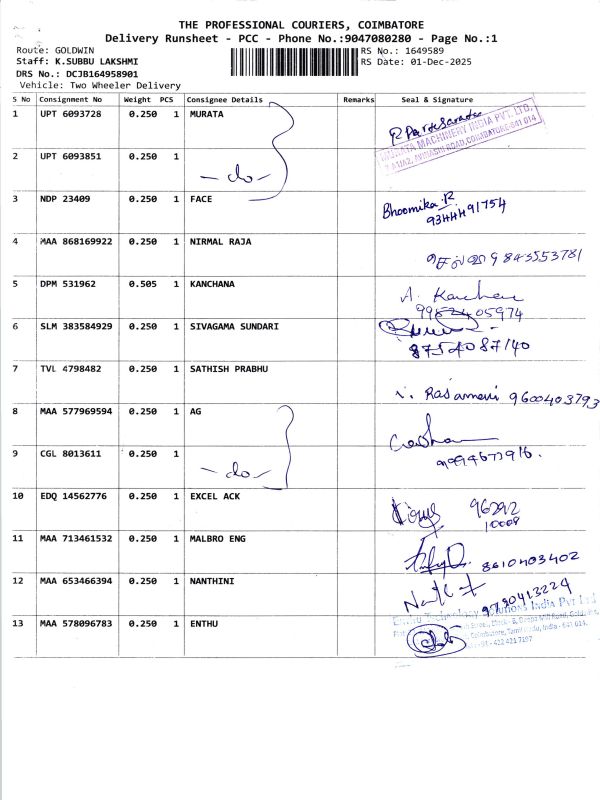 THE PROFESSIONAL COURIERS, COIMBATORE
Delivery Runsheet - PCC - Phone No.:9047080280 - Page No.:1
Route: GOLDWIN RS No.: 1649589
Staff: K.SUBBU LAKSHMI RS Date: 01-Dec-2025
DRS No.: DCJB164958901
Vehicle: Two Wheeler Delivery
S No Consignment No Weight PCS Consignee Details Remarks Seal & Signature
1 UPT 6093728 0.250 1 MURATA
MURATA MACHINERY INDIA PVT. LTD,
AVINASHI ROAD, COIMBATORE-641 014
2 UPT 6093851 0.250 1
- do -
3 NDP 23409 0.250 1 FACE Bhoomika.R
9344491754
4 MAA 868169922 0.250 1 NIRMAL RAJA 9843553781
5 DPM 531962 0.505 1 KANCHANA A. Kanchana
05974
6 SLM 383584929 0.250 1 SIVAGAMA SUNDARI
8754087140
7 TVL 4798482 0.250 1 SATHISH PRABHU
Rasamani 9600403793
8 MAA 577969594 0.250 1 AG
9 CGL 8013611 0.250 1
- do -
10 EDQ 14562776 0.250 1 EXCEL ACK 96292
10008
11 MAA 713461532 0.250 1 MALBRO ENG 8610403402
12 MAA 653466394 0.250 1 NANTHINI
9790413224
Technology Solutions India Pvt Ltd
13 MAA 578096783 0.250 1 ENTHU
Coimbatore, Tamil Nadu, India - 641 014.
+91 - 422 421 7197